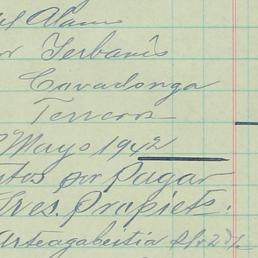 Alamo
or Yerbanís
Cavadonga
Terreros
Mayo 1942
tos por Pagar
Tres. Propiets.
Arteagabeitia